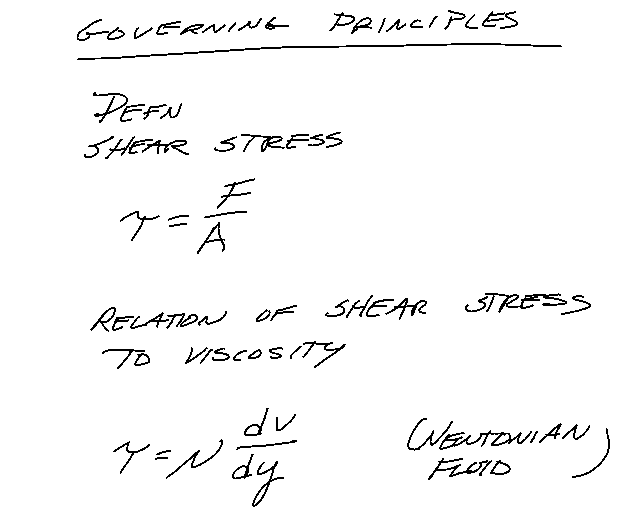 GOVERNING PRINCIPLES
DEFN
SHEAR STRESS
τ = F/A
RELATION OF SHEAR STRESS
TO VISCOSITY
τ = μ dv/dy (NEWTONIAN
FLUID)